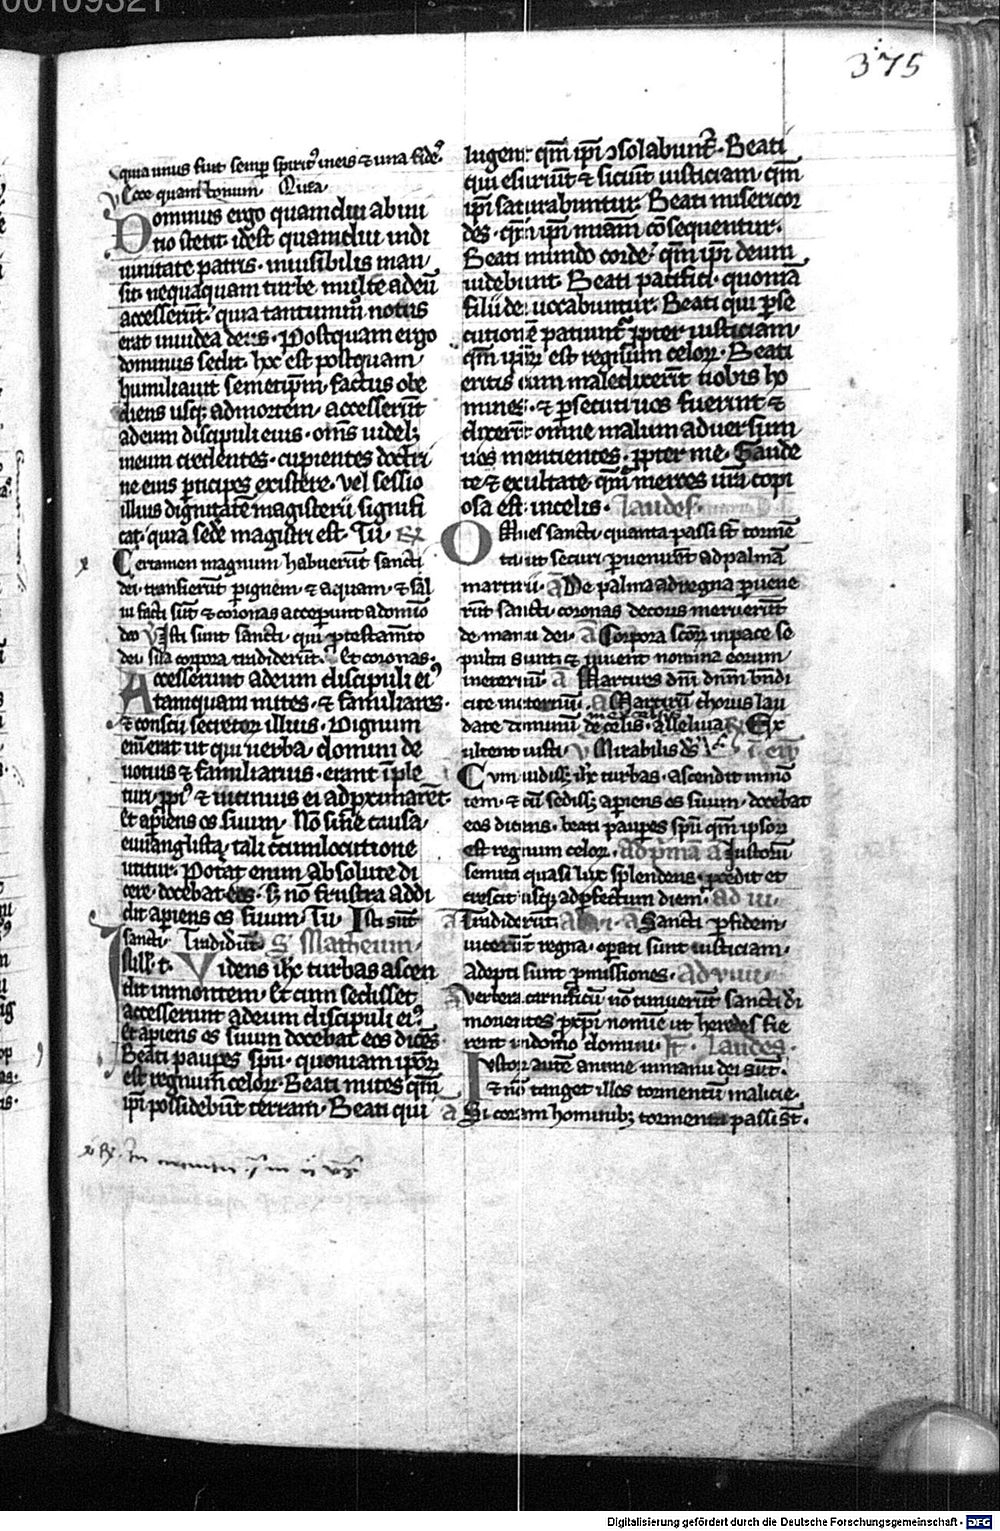 00109321
375
quia unus fuit semp spirit⁹ ineis ⁊ una fide⁹
Ecce quam bonum. Quia
Dominus ergo quamdiu abiui
tio stetit idest quamdiu indi
uinitate patris. inuisibilis man
sit. nequaquam turbe multe adeū
accesserūt. quia tantummō notus
erat iniudea deus. Postquam ergo
dominus sedit. hoc est postquam
humiliauit semetip̄m. factus obe
diens usq; admortem. accesserūt
adeum discipuli eius. om̄s uidelꝫ
ineum credentes. cupientes doctri
ne eius pticipes existere. vel sessio
illius dignitatē magisterii signifi
cat. quia sedē magistri est. Tu.
Certamen magnum habuerūt sancti
dei. transierūt p ignem ⁊ aquam. ⁊ sal
ui facti sūt ⁊ coronas acceperunt adomīo
deo Isti sunt sancti qui p testamīto
dei sua corpora tradiderūt. Et coronas.
Accesserunt adeum discipuli ei⁹
tamquam mites. ⁊ familiares.
⁊ conscii secretorum illius. Dignum
enī erat ut qui uerba domini de
uotius ⁊ familiarius. erant īple
turi. ppi⁹ ⁊ uicinius ei adpximarēt.
Et apiens os suum. Nō sine causa
euuanglista tali circumlocutione
utitur. Potāt enim absolute di
cere. docebat eos. sꝫ nō frustra addi
dit apiens os suum. Tu. Isti sūt
sancti. Tradidūt S Matheum.
Inill. t. Videns ihc turbas ascen
dit inmontem. Et cum sedisset
accesserunt adeum discipuli ei⁹
Et apiens os suum docebat eos dicēs
Beati paupes spū. quoniam ipoꝝ
est regnum celoꝝ. Beati mites qm̄
ip̄i possidebūt terram. Beati qui
lugent: qm̄ ip̄i ↄsolabunt̄. Beati
qui esuriūt ⁊ siciūt iusticiam. qm̄
ip̄i saturabuntur. Beati misericor
des. qm̄ ip̄i miām cōsequentur.
Beati mundo corde. qm̄ ip̄i deum
uidebunt. Beati pacifici. quoniā
filii dei uocabuntur. Beati qui pse
cutionē patiunt̄ ppter iusticiam.
qm̄ ip̄oꝝ est regnum celoꝝ. Beati
eritis cum maledixerīt uobis ho
mines. ⁊ psecuti uos fuerint ⁊
dixerīt omne malum aduersum
uos mentientes. ppter me. Gaude
te ⁊ exultate qm̄ merces ur̄a copi
osa est. incelis. laudes.
Omnes sancti quanta passi sūt tormē
ta. ut securi puenirēt ad palmā
martirii. a De palma adregna puene
rūt sancti. coronas decoris meruerūt
de manu dei. a Corpora scoꝝ inpace se
pulta sunt. ⁊ uiuent nomina eorum
ineternū. a Martires dn̄i dn̄m bn̄di
cite ineternū. a Martirū chorus lau
date dominum de celis. alleluia. Ex
ultent iusti. Mirabilis ds̄
Cum uidissꝫ ihc turbas. ascendit inmō
tem. ⁊ cū sedissꝫ apiens os suum. docebat
eos dicens. beati paupes spū qm̄ ipsoꝝ
est regnum celoꝝ. ad pmā a Iustorū
semita quasi lux splendens. pcedit et
crescit usq; adpfectum diem. ad iii.
Tradiderūt. ad vi. a Sancti p fidem.
uicerūt regna. opati sunt iusticiam.
Adepti sunt pmissiones. ad viiii.
Verbera carnificū nō timuerūt sancti di
morientes p xpi nomine ut heredes fie
rent indomo domini. It. laudes.
Iustoꝝ autē anime inmanu dei sūt.
⁊ nō tanget illos tormentū malicie.
a Si coram hominibꝫ tormenta passi st̄.
Digitalisierung gefördert durch die Deutsche Forschungsgemeinschaft - DFG